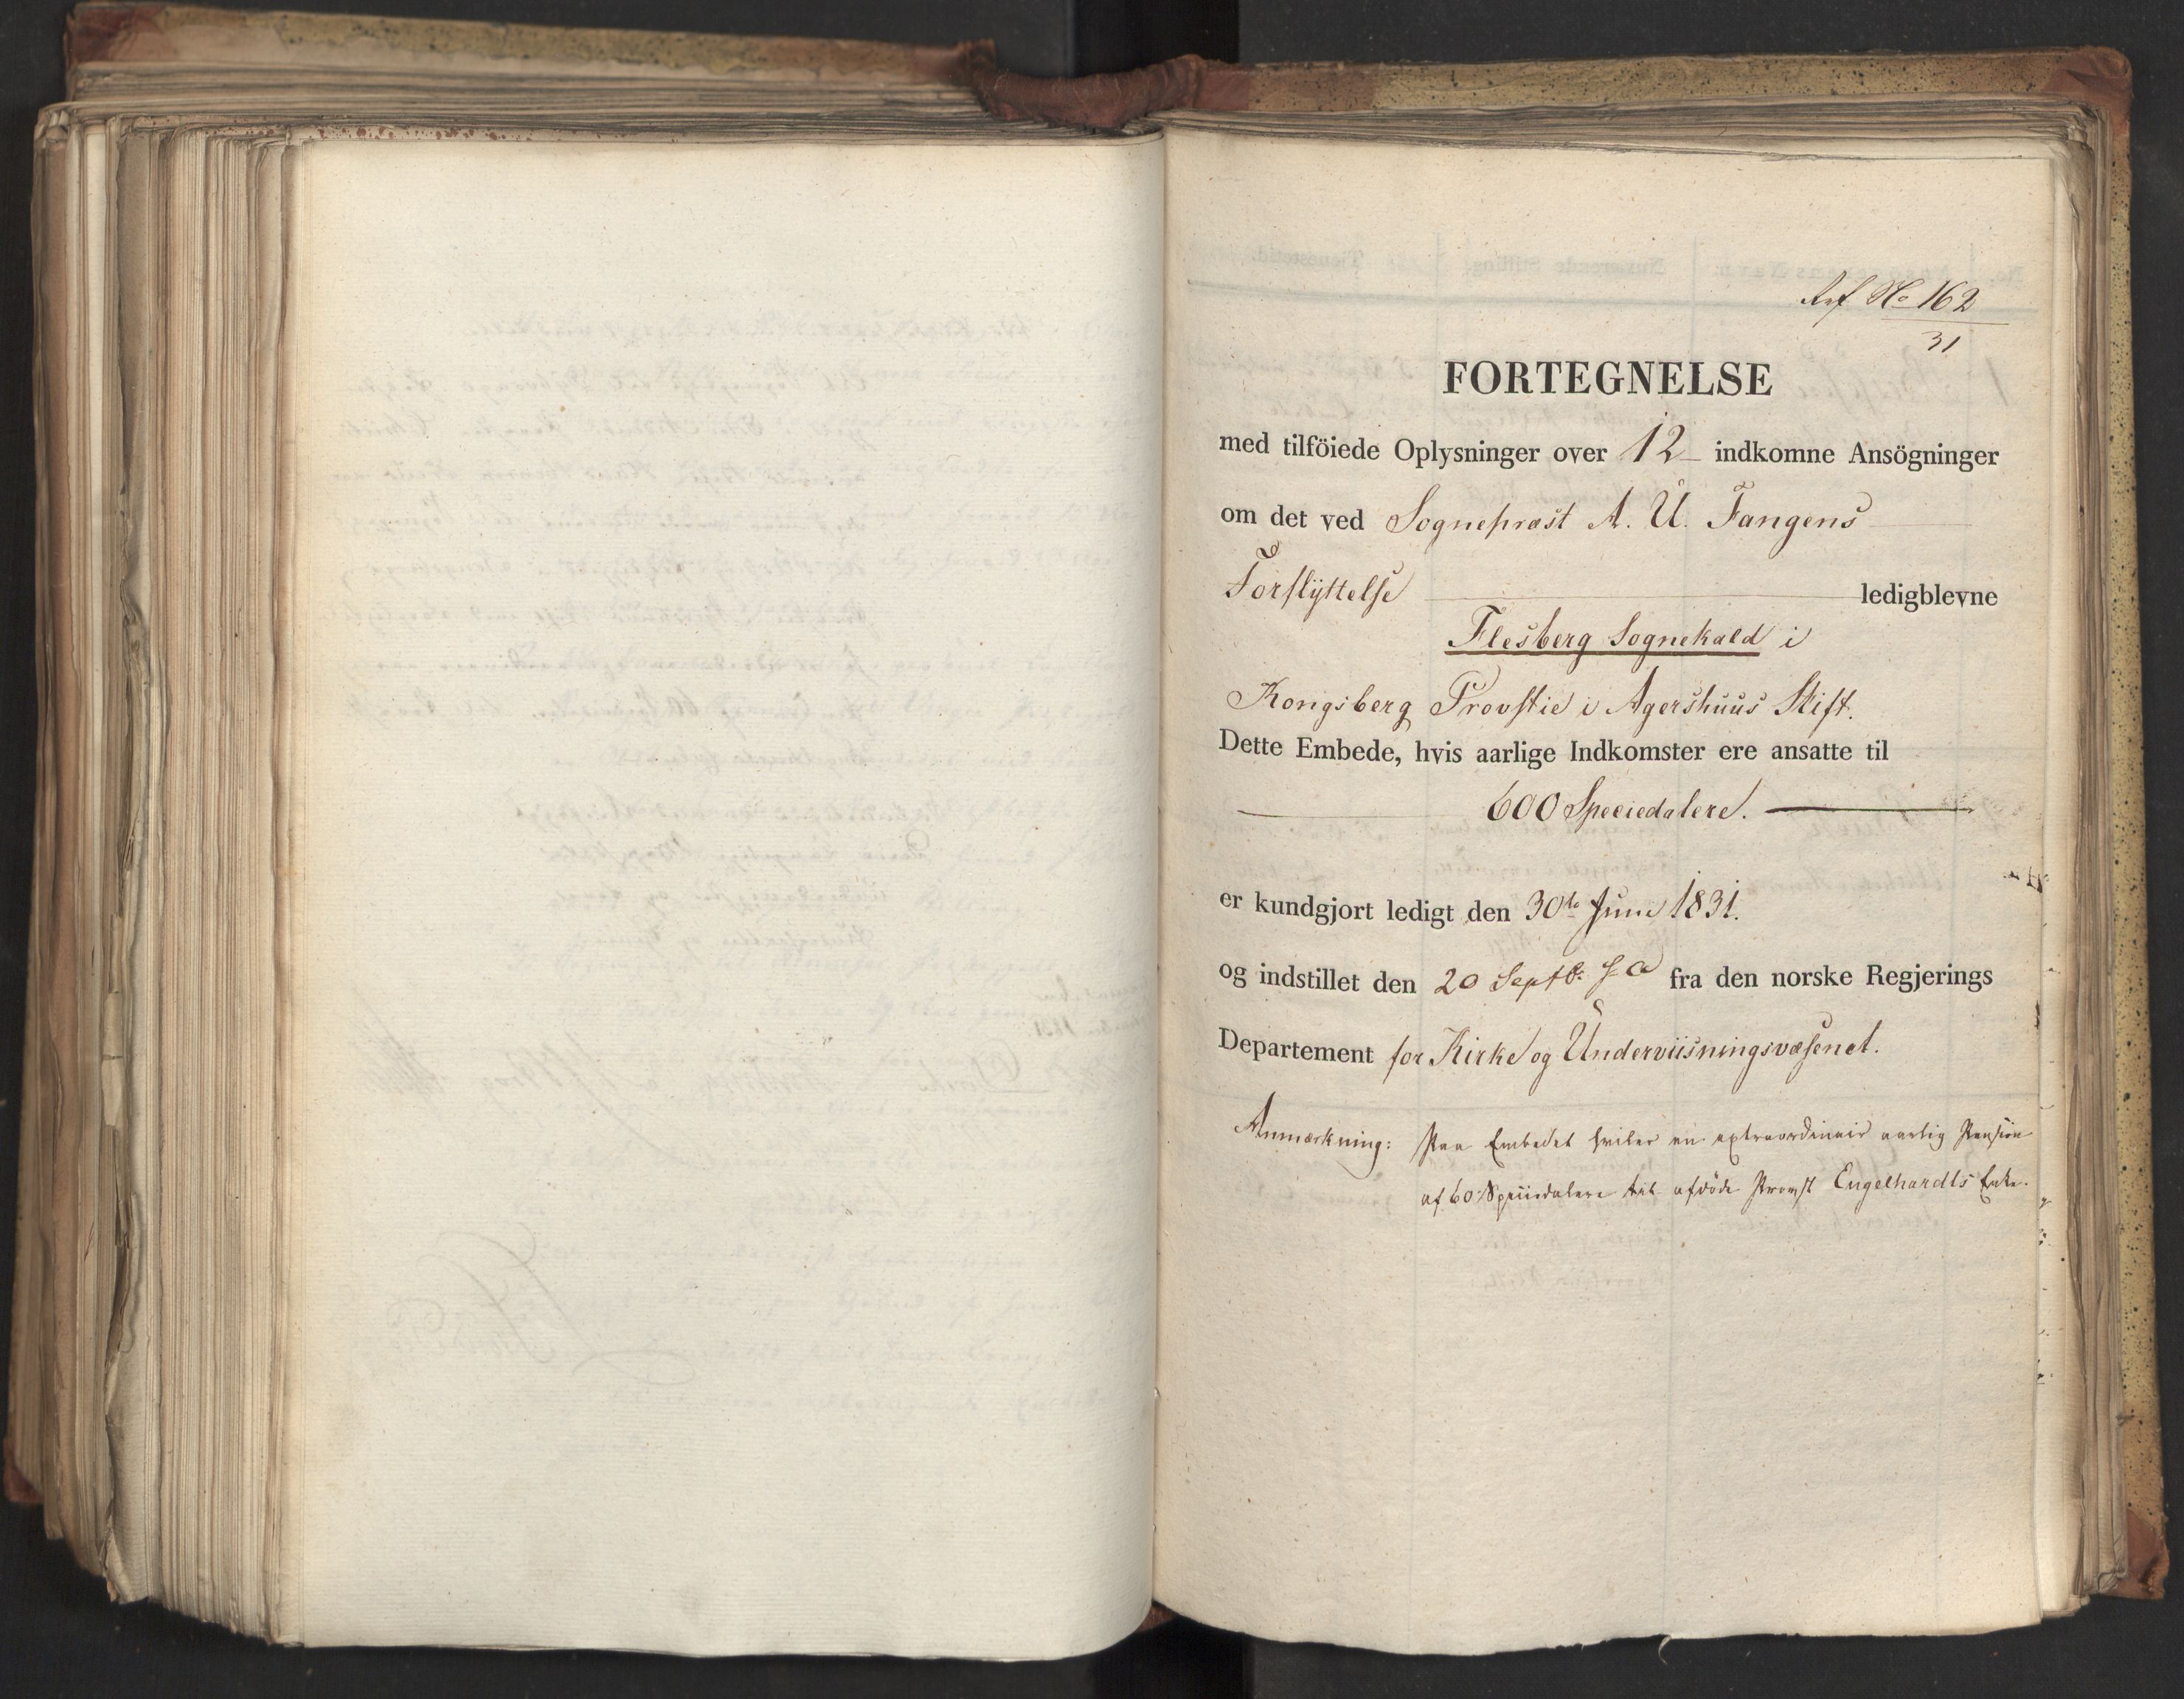 Ref No 162
31
FORTEGNELSE
med tilföiede Oplysninger over 12 indkomne Ansögninger
om det ved Sognepræst A. U. Fangens
Forflÿttelse ledigblevne
Flesberg Sognekald i
Kongsberg Provstie i Agershuus Stift.
Dette Embede, hvis aarlige Indkomster ere ansatte til
600 Speciedalere.
er kundgjort ledigt den 30te Juni 1831.
og indstillet den 20 Septb: s. A. fra den norske Regjerings
Departement for Kirke og Underviisningsvæsenet.
Anmærkning: Paa Embedet hviler en extraordinair aarlig Pension
af 60 Speciedalere til afdöde Provst Engelhardts Enke.